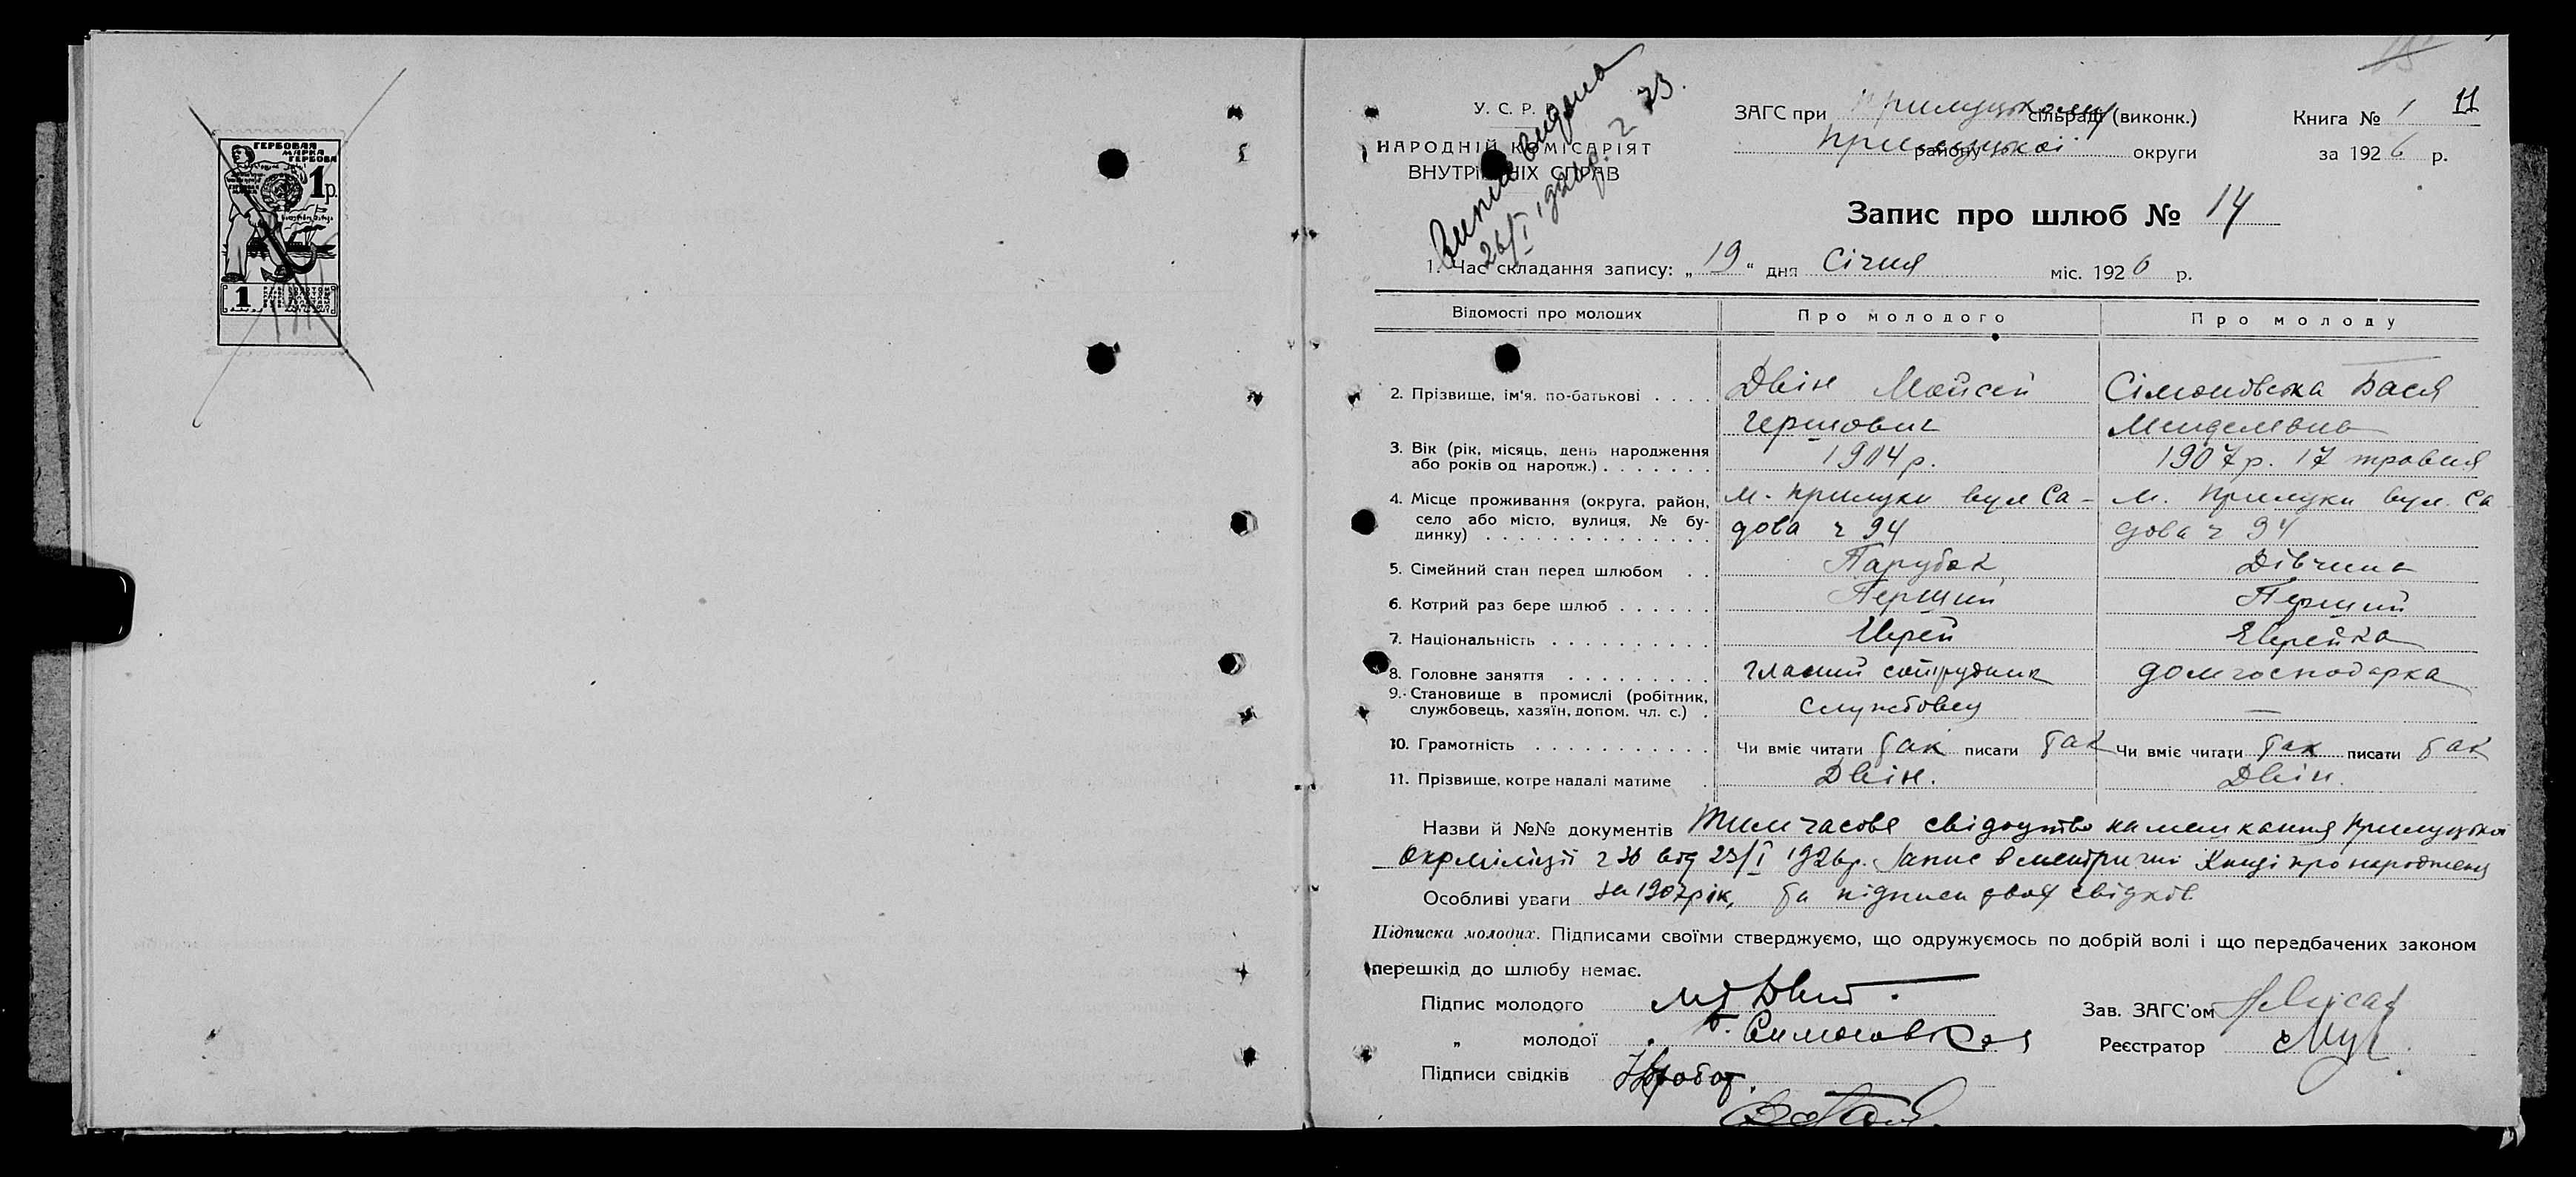 ГЕРБОВАЯ
МАРКА
ГЕРБОВА
1 р.
1
11
У. С. Р. Р.
НАРОДНІЙ КОМІСАРІЯТ
ВНУТРІШНІХ СПРАВ
Випис видана
26/I 1926р. 2 23.
ЗАГС при Прилуцькому сільраді (виконк.)
Прилуцької району округи
Книга № 1
за 1926 р.
Запис про шлюб № 14
1. Час складання запису: „19“ дня Січня міс. 1926 р.
Відомості про молодих Про молодого Про молоду
2. Прізвище, ім'я, по-батькові . . . . Двін Мойсей Сімоновська Бася
Гершович Менделевна
3. Вік (рік, місяць, день народження 1904 р. 1907 р. 17 травня
або років од народж.) . . . . . . .
4. Місце проживання (округа, район, м. Прилуки вул Са- м. Прилуки вул. Са
село або місто, вулиця, № бу- дова ч 94 дова ч 94
динку) . . . . . . . . . . . . . .
5. Сімейний стан перед шлюбом . . Парубок Дівчина
6. Котрий раз бере шлюб . . . . . . Перший Перший
7. Національність . . . . . . . . . . Єврей Єврейка
8. Головне заняття . . . . . . . . . сотрудник домгосподарка
9. Становище в промислі (робітник, Службовец —
службовець, хазяїн, допом. чл. с.) .
10. Грамотність . . . . . . . . . . . Чи вміє читати так писати так Чи вміє читати так писати так
11. Прізвище, котре надалі матиме . Двін. Двін.
Назви й №№ документів Тимчасове свідоцтво на мешкання Прилуцької
Окрміліції ч 36 від 23/I 1926р. Запис в метричні Книзі про народження
Особливі уваги за 1907 рік, та підписи двох свідків.
Підписка молодих. Підписами своїми стверджуємо, що одружуємось по добрій волі і що передбачених законом
перешкід до шлюбу немає.
Підпис молодого М Двин.
Зав. ЗАГС'ом
„ молодої Б. Симоновская
Реєстратор
Підписи свідків